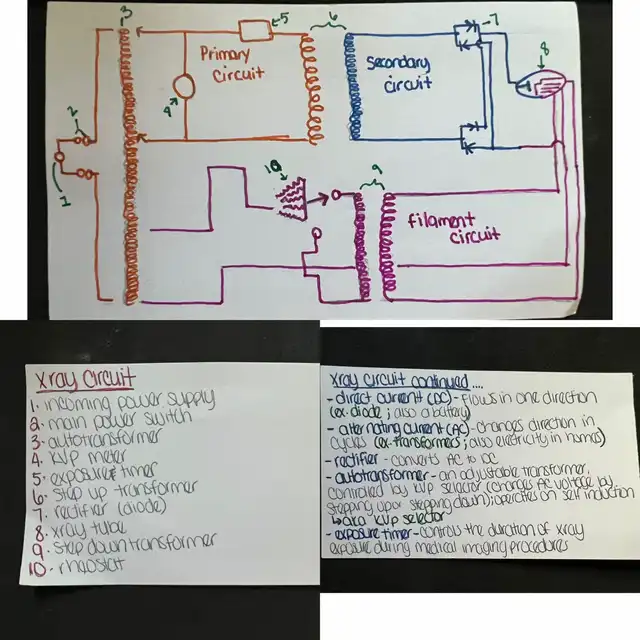 3
5
6
7
8
Primary
circuit
Secondary
circuit
4
2
1
10
9
filament
circuit
Xray Circuit
1. incoming power supply
2. main power switch
3. autotransformer
4. KVP meter
5. exposure timer
6. step up transformer
7. rectifier (diode)
8. xray tube
9. step down transformer
10. rheostat
xray circuit continued....
- direct current (DC) - flows in one direction
(ex. diode; also a battery)
- alternating current (AC) - changes direction in
cycles (ex-transformers; also electricity in homes)
- rectifier - converts AC to DC
- autotransformer - an adjustable transformer,
controlled by KVP selector (changes AC voltage by
stepping up or stepping down); operates on self induction
↳ aka KVP selector
- exposure timer - controls the duration of xray
exposure during medical imaging procedures